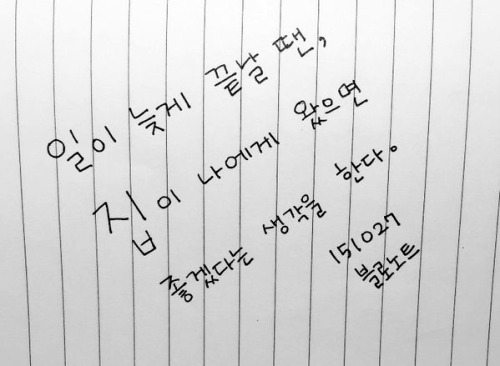 일이 늦게 끝날 땐,
집이 나에게 왔으면
좋겠다는 생각을 한다.
151027
블로노트